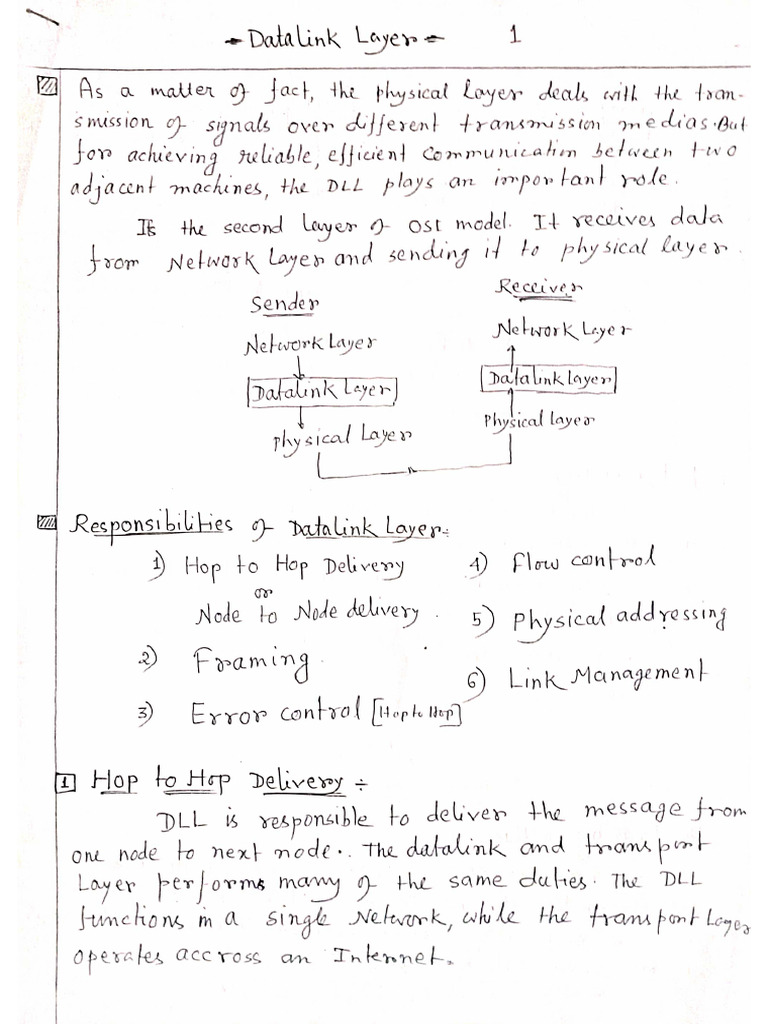 Datalink Layer 1
As a matter of fact, the physical Layer deals with the tran-
smission of signals over different transmission medias. But
for achieving reliable, efficient communication between two
adjacent machines, the DLL plays an important role.
It's the second layer of OSI model. It receives data
from Network Layer and sending it to physical layer.
Sender
Receiver
Network Layer
Network Layer
Datalink Layer
Datalink layer
Physical Layer
Physical layer
Responsibilities of Datalink Layer:
1) Hop to Hop Delivery
or
Node to Node delivery.
2) Framing.
3) Error control [Hop to Hop]
4) Flow control
5) Physical addressing
6) Link Management
1 Hop to Hop Delivery ÷
DLL is responsible to deliver the message from
one node to next node. The datalink and transport
Layer performs many of the same duties. The DLL
functions in a single Network, while the transport Layer
operates accross an Internet.